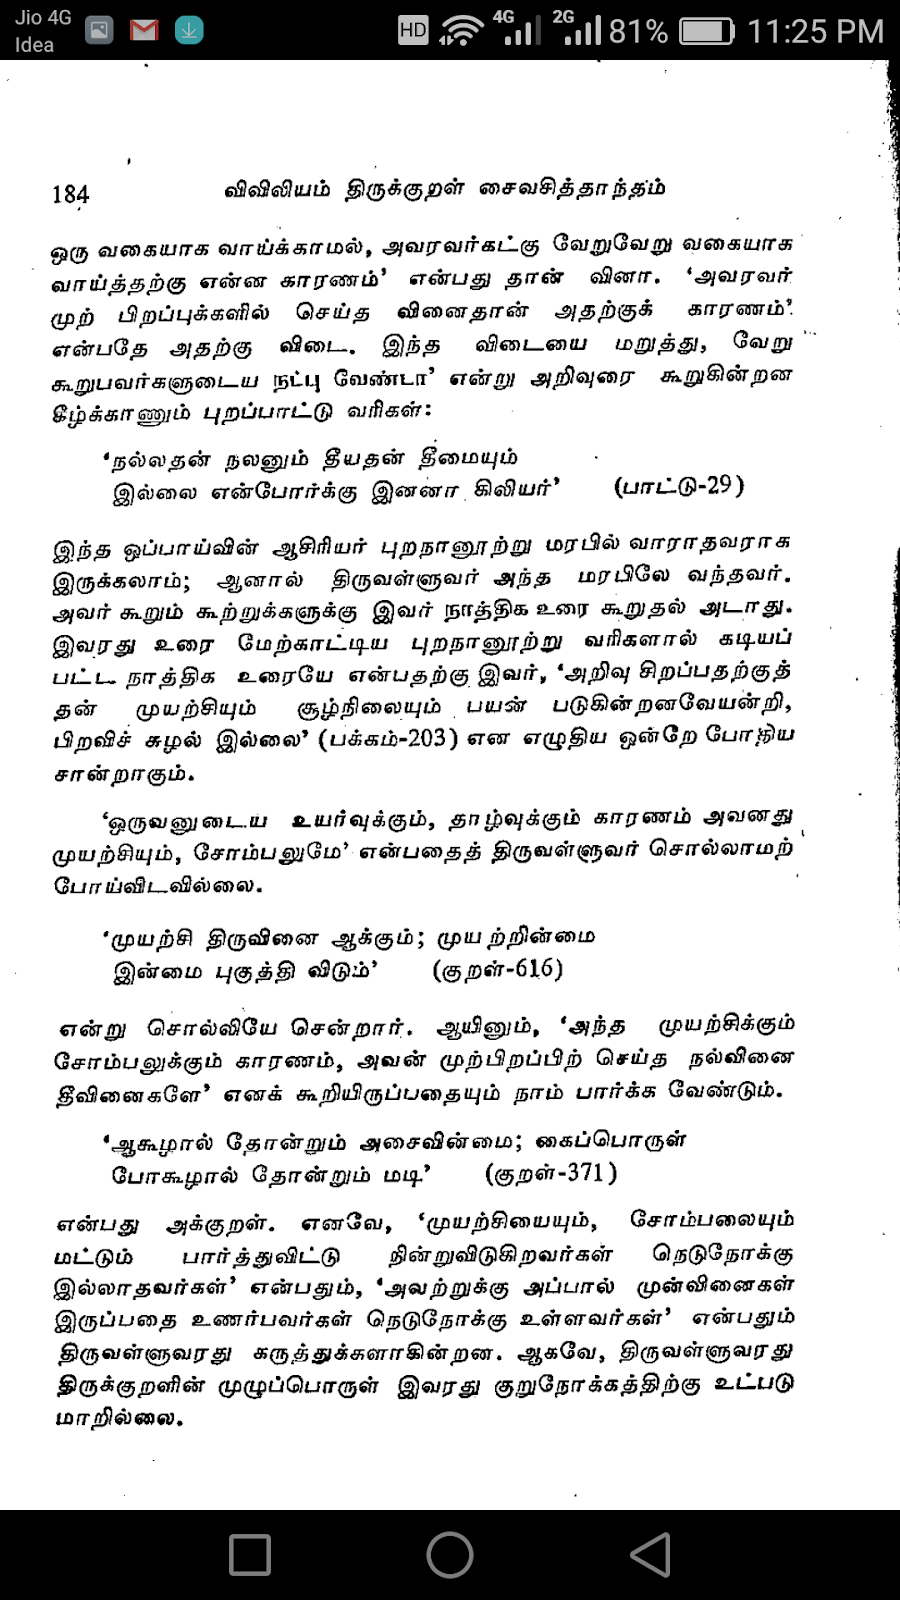 Jio 4G
Idea
HD 4G 2G 81% 11:25 PM
184 விவிலியம் திருக்குறள் சைவசித்தாந்தம்
ஒரு வகையாக வாய்க்காமல், அவரவர்கட்கு வேறுவேறு வகையாக
வாய்த்தற்கு என்ன காரணம்’ என்பது தான் வினா. ‘அவரவர்
முற் பிறப்புக்களில் செய்த வினைதான் அதற்குக் காரணம்’
என்பதே அதற்கு விடை. இந்த விடையை மறுத்து, வேறு
கூறுபவர்களுடைய நட்பு வேண்டா’ என்று அறிவுரை கூறுகின்றன
கீழ்க்காணும் புறப்பாட்டு வரிகள்:
‘நல்லதன் நலனும் தீயதன் தீமையும்
இல்லை என்போர்க்கு இனனா கிலியர்’ (பாட்டு-29)
இந்த ஒப்பாய்வின் ஆசிரியர் புறநானூற்று மரபில் வாராதவராக
இருக்கலாம்; ஆனால் திருவள்ளுவர் அந்த மரபிலே வந்தவர்.
அவர் கூறும் கூற்றுக்களுக்கு இவர் நாத்திக உரை கூறுதல் அடாது.
இவரது உரை மேற்காட்டிய புறநானூற்று வரிகளால் கடியப்
பட்ட நாத்திக உரையே என்பதற்கு இவர், ‘அறிவு சிறப்பதற்குத்
தன் முயற்சியும் சூழ்நிலையும் பயன் படுகின்றனவேயன்றி,
பிறவிச் சுழல் இல்லை’ (பக்கம்-203) என எழுதிய ஒன்றே போதிய
சான்றாகும்.
‘ஒருவனுடைய உயர்வுக்கும், தாழ்வுக்கும் காரணம் அவனது
முயற்சியும், சோம்பலுமே’ என்பதைத் திருவள்ளுவர் சொல்லாமற்
போய்விடவில்லை.
‘முயற்சி திருவினை ஆக்கும்; முயற்றின்மை
இன்மை புகுத்தி விடும்’ (குறள்-616)
என்று சொல்லியே சென்றார். ஆயினும், ‘அந்த முயற்சிக்கும்
சோம்பலுக்கும் காரணம், அவன் முற்பிறப்பிற் செய்த நல்வினை
தீவினைகளே’ எனக் கூறியிருப்பதையும் நாம் பார்க்க வேண்டும்.
‘ஆகூழால் தோன்றும் அசைவின்மை; கைப்பொருள்
போகூழால் தோன்றும் மடி’ (குறள்-371)
என்பது அக்குறள். எனவே, ‘முயற்சியையும், சோம்பலையும்
மட்டும் பார்த்துவிட்டு நின்றுவிடுகிறவர்கள் நெடுநோக்கு
இல்லாதவர்கள்’ என்பதும், ‘அவற்றுக்கு அப்பால் முன்வினைகள்
இருப்பதை உணர்பவர்கள் நெடுநோக்கு உள்ளவர்கள்’ என்பதும்
திருவள்ளுவரது கருத்துக்களாகின்றன. ஆகவே, திருவள்ளுவரது
திருக்குறளின் முழுப்பொருள் இவரது குறுநோக்கத்திற்கு உட்படு
மாறில்லை.